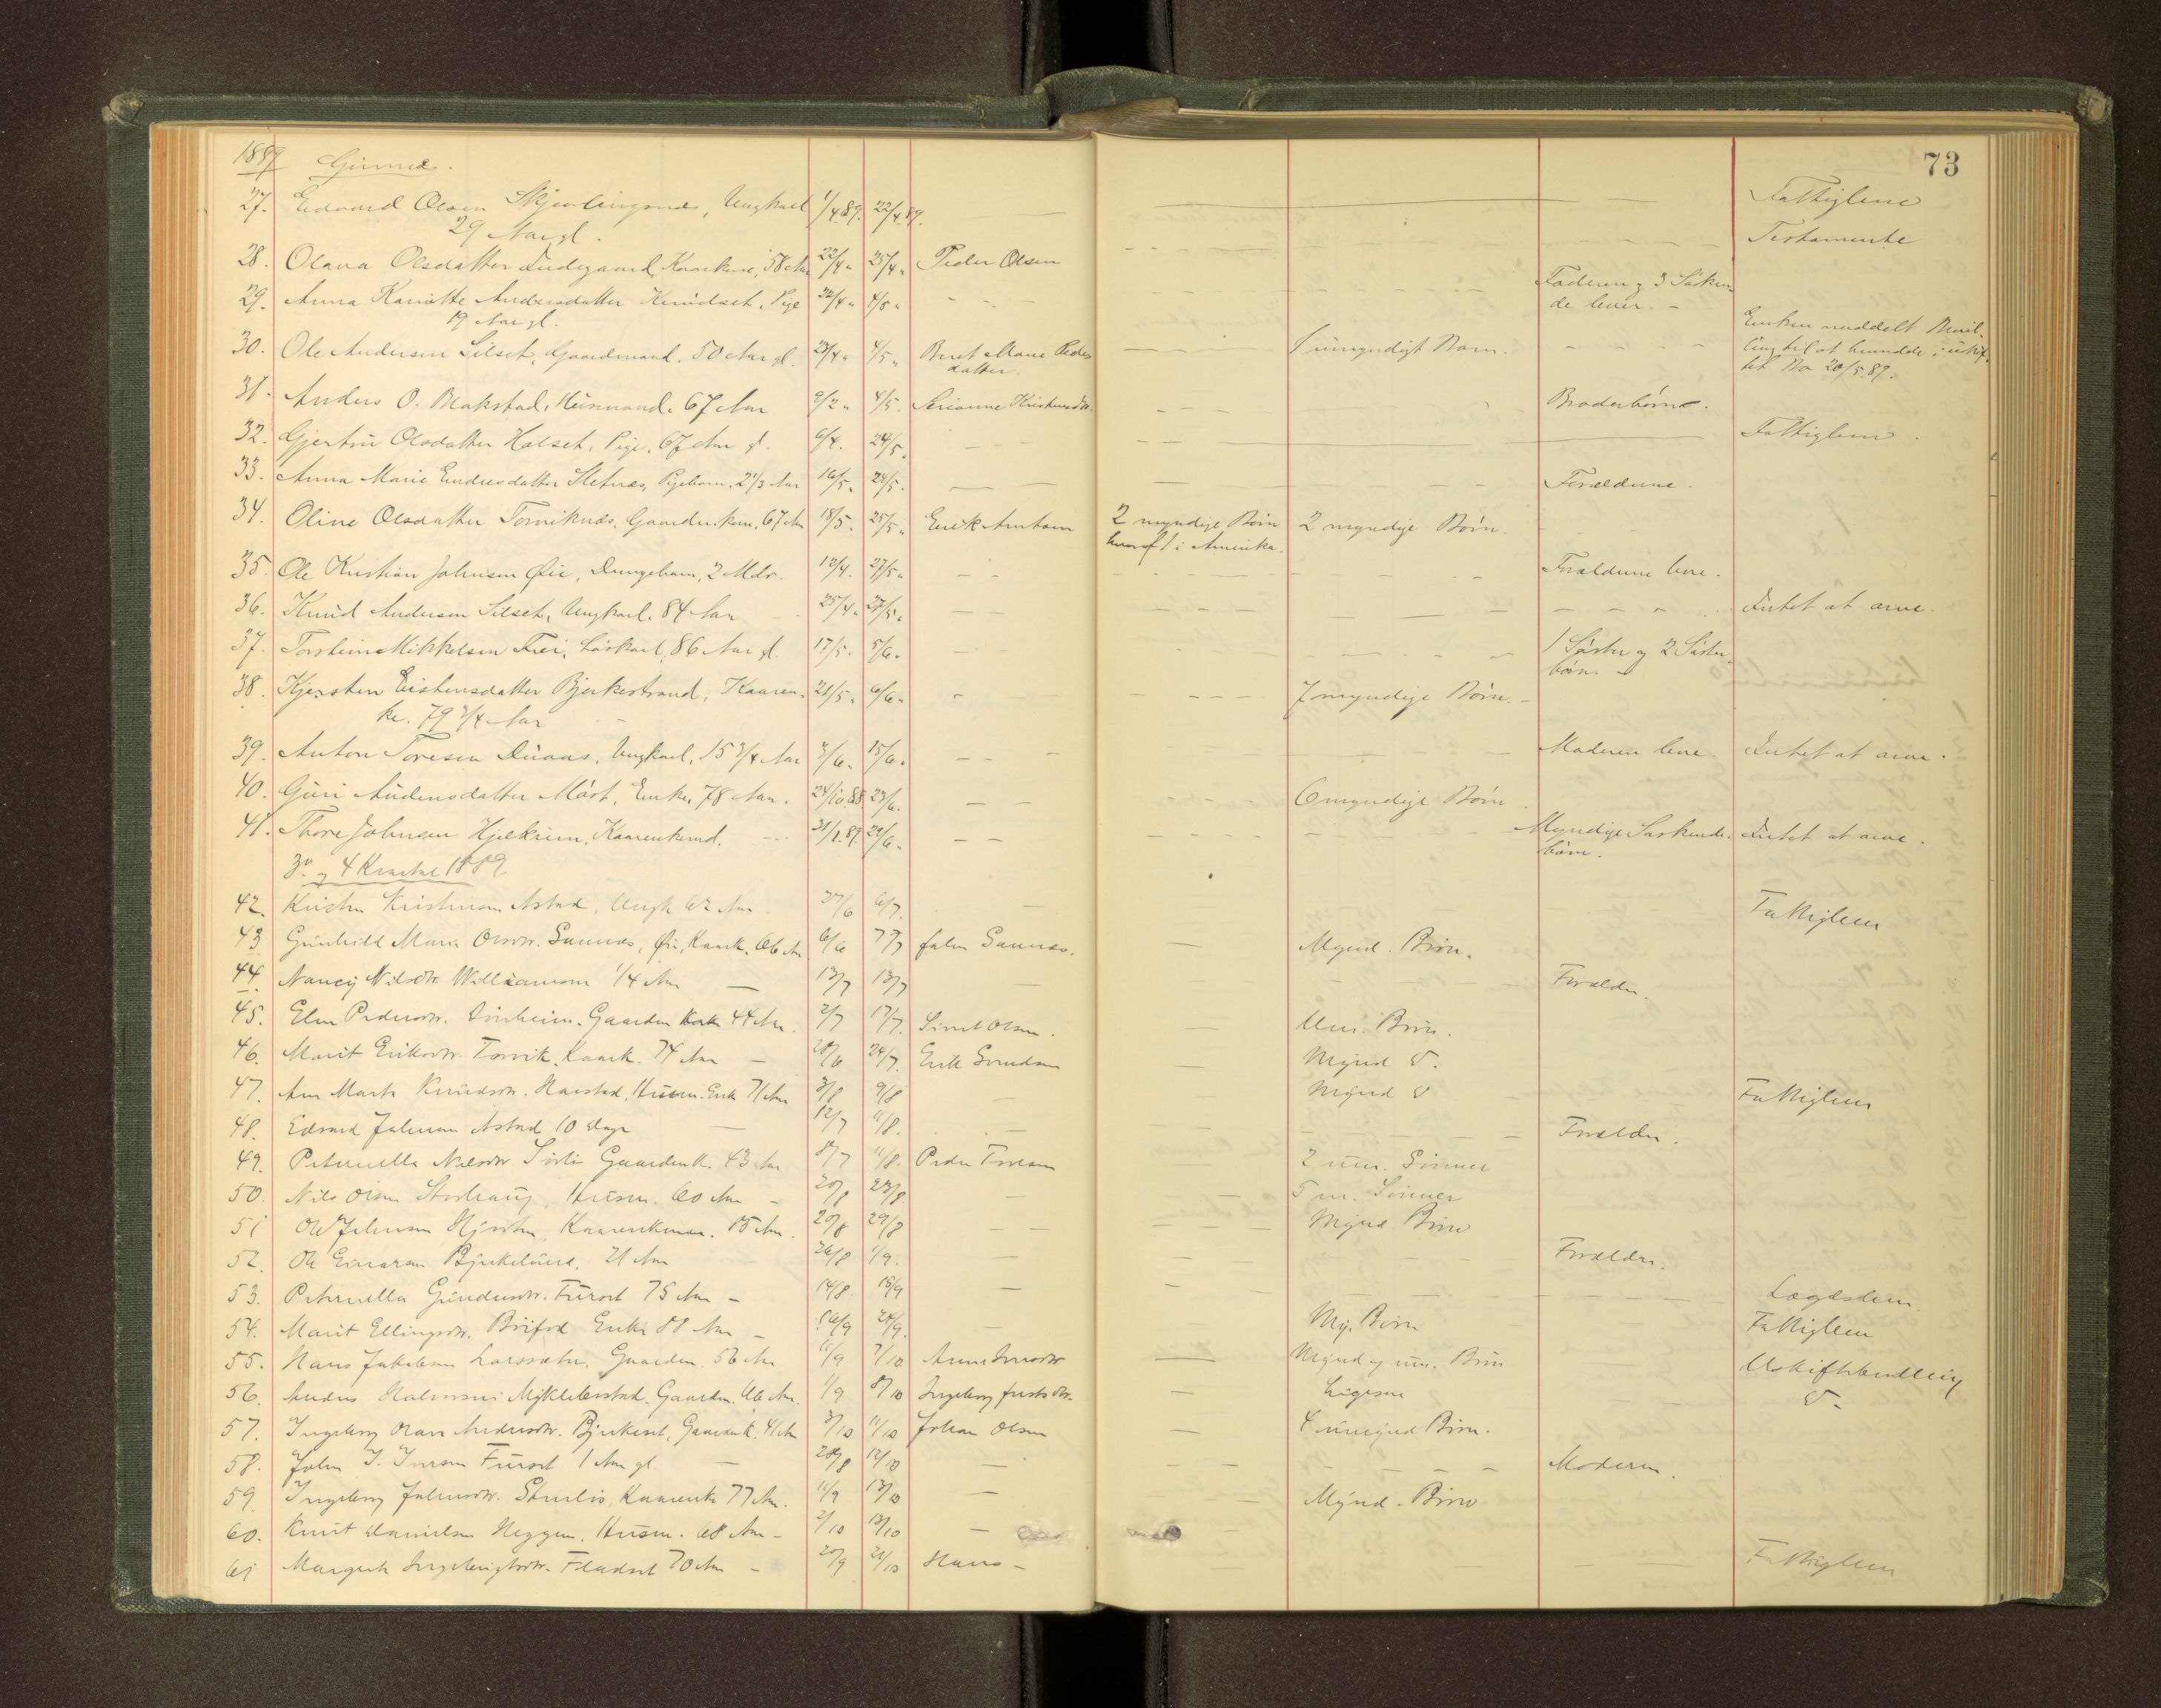 73
1889 Gimnæs.
27. Edvard Olsen Skjevlingsnæs, Ungkarl 1/4 89. 22/4 89. Fattiglem
29 Aar gl.
28. Olava Olsdatter Indergaard, Kaarkone, 58 Aar 22/4 " 25/4 " Peder Olsen Testamente
29. Anna Kariotte Andersdatter Knudset, Pige 22/4 " 4/5 " Faderen og 3 Søsken-
19 Aar gl. de lever. -
30. Ole Andersen Silset, Gaardmand. 50 Aar gl. 23/4 " 4/5 " Beret Marie Peders 1 umyndigt Barn. Enken meddelt Bevil-
datter. ling til at hensidde i uskif-
tet Bo 20/5 89.
31. Anders O. Blakstad, Husmand. 67 Aar 9/2 " 4/5. Serianne Kristensdr. Broderbørn.
32. Gjertru Olsdatter Halset, Pige. 67 Aar gl. 6/4. 24/5. Fattiglem.
33. Anna Marie Endresdatter Sletnæs, Pigebarn. 2 1/3 Aar 16/5. 24/5. Forældrene.
34. Oline Olsdatter Torviknæs, Gaardm.kone, 67 Aar 18/5. 25/5. Erik Antons 2 myndige Børn 2 myndige Børn.
hvoraf 1 i Amerika.
35. Ole Kristian Johnsen Øie, Drengebarn, 2 Mdr. 12/4. 27/5. Forældrene leve.
36. Knud Andersen Silset, Ungkarl. 84 Aar 25/4. 27/5. Intet at arve.
37. Torstein Mikkelsen Frei, Løskarl, 86 Aar gl. 17/5. 5/6. 1 Søster og 2 Søster-
børn
38. Kjersten Eistensdatter Bjerkestrand, Kaaren- 21/5. 6/6. 7 myndige Børn. -
ke. 79 3/4 Aar
39. Anton Toresen Duaas, Ungkarl, 15 3/4 Aar 3/6. 15/6. Moderen leve. Intet at arve.
40. Guri Audensdatter Møst, Enke, 78 Aar. 24/10 88. 23/6. 6 myndige Børn
41. Thore Johnsen Hjelkrem, Kaarenkemd. 31/1 89. 29/6. Myndige Søskende- Intet at arve.
børn.
3die og 4 Kvartal 1889
42. Kristen Kristensen Astad, Ungk. 62 Aar 27/6 6/7. Fattiglem
43 Gunhild Maria Olsdtr. Sannæs, Øie, Kaark. 66 Aar 6/6 7/7 John Sannæs. Mynd. Børn.
44. Nancy Nilsdtr. Williamson 1/4 Aar 13/7 13/7 Forældre.
45. Elen Pedersdtr. Gaardm. kone 44 Aar. 2/7 17/7. Sivert Olsen. Um. Børn.
46. Marit Eriksdtr. Torvik, Kaark. 74 Aar 28/6 24/7. Erik Mynd D.
47. Ane Marta Knudsdtr. Harstad, Husm. Enke 71 Aar 3/8 9/8 Mynd D Fattiglem
48. Edvard Johnsen Astad 10 Dage 12/7 9/8. Forældre.
49. Petrnella Nilsdtr Gaardmk. 43 Aar 18/7 11/8. Peder Toresen 2 um. Sønner
50. Nils Olsen Storhaug, Husm. 60 Aar 20/8 23/8 5 m. Sønner
51 Ole Johnsen Kaarenkemn. 85 Aar. 20/8 29/8 Mynd Børn
52. Ole Einarsen Bjerkelund. 21 Aar 26/8 1/9. Forældre.
53. Petrnella Gundersdtr. Furset 75 Aar - 14/8. 18/9 Lægdslem
54. Marit Ellingsdtr. Enke 88 Aar - 16/9 24/9. My. Børn Fattiglem
55. Hans Jakobsen Larssæter, Gaardm. 56 Aar 11/9 7/10 Mynd og um. Børn Uskiftebevilling
56. Anders Halvorsen Myklebostad, Gaardm. 66 Aar. 1/9 8/10 Ingeborg Ligesaa D.
57. Ingeborg Olava Andersdtr. Bjerkeset, Gaardmk. 41 Aar 3/10 11/10 Johan Olsen 4 umynd Børn.
58. John I. Iversen Furset 1 Aar gl. 28/8 12/10 Moderen.
59. Ingeborg Johnsdtr. Kaarenke 77 Aar. 11/9 13/10 Mynd. Børn
60. Knut Danielsen Heggem, Husm. 68 Aar - 2/10 13/10
61 Margrete Fladset 70 Aar 20/9 21/10 Hans - Fattiglem